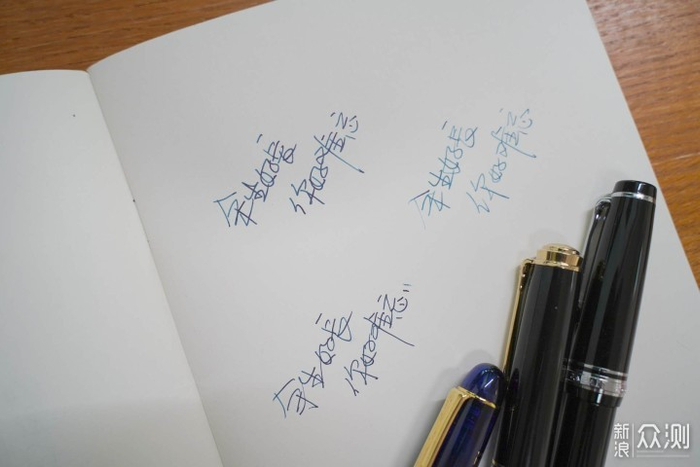 余生好长
你好难忘
余生好长
你好难忘
余生好长
你好难忘"
新浪众测